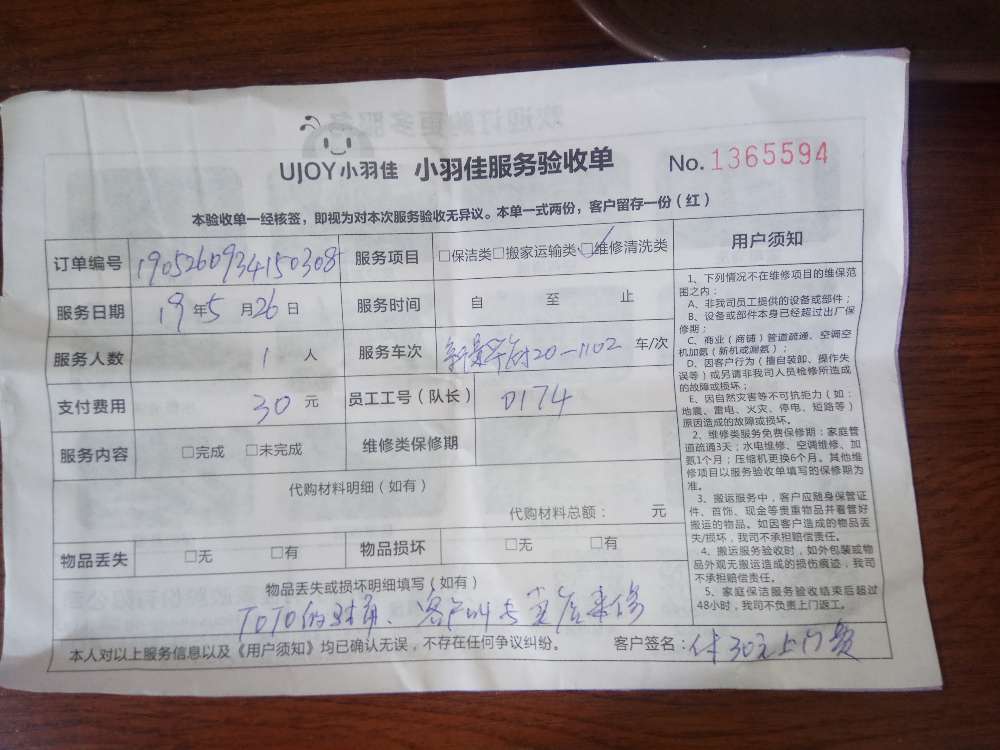 UJOY小羽佳 小羽佳服务验收单 No.1365594
本验收单一经核签，即视为对本次服务验收无异议。本单一式两份，客户留存一份（红）
订单编号 1905260934150308 服务项目 □保洁类□搬家运输类□维修清洗类
服务日期 19年5月26日 服务时间 自 至 止
服务人数 1 人 服务车次 20-1102 车/次
支付费用 30 元 员工工号（队长） 0174
服务内容 □完成 □未完成 维修类保修期
代购材料明细（如有）
代购材料总额： 元
物品丢失 □无 □有 物品损坏 □无 □有
物品丢失或损坏明细填写（如有）
TOTO的 客户叫专卖店来修
本人对以上服务信息以及《用户须知》均已确认无误，不存在任何争议纠纷。 客户签名：付30元上门费
用户须知
1、下列情况不在维修项目的维保范
围之内：
A、非我司员工提供的设备或部件；
B、设备或部件本身已经超过出厂保
修期；
C、商业（商铺）管道疏通、空调空
机加氨（新机或漏氨）；
D、因客户行为（擅自装卸、操作失
误等）或另请非我司人员检修所造成
的故障或损坏；
E、因自然灾害等不可抗拒力（如：
地震、雷电、火灾、停电、短路等）
原因造成的故障或损坏。
2、维修类服务免费保修期：家庭管
道疏通3天；水电维修、空调维修、加
氨1个月；压缩机更换6个月。其他维
修项目以服务验收单填写的保修期为
准。
3、搬运服务中，客户应随身保管证
件、首饰、现金等贵重物品并看管好
搬运的物品。如因客户造成的物品丢
失/损坏，我司不承担赔偿责任。
4、搬运服务验收时，如外包装或物
品外观无搬运造成的损伤痕迹，我司
不承担赔偿责任。
5、家庭保洁服务验收结束后超过
48小时，我司不负责上门返工。